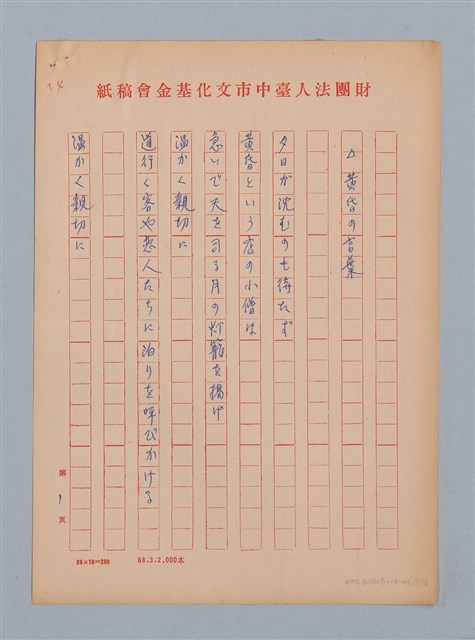 財團法人臺中市文化基金會稿紙
△黃昏の言葉
夕日が沈むのも待たず
黃昏という店の小僧は
急いで天を司る月の灯籠を揚げ
温かく親切に
道行く客や恋人たちに泊りを呼びかける
温かく親切に
第1頁
20×10=200
68.3.2,000本